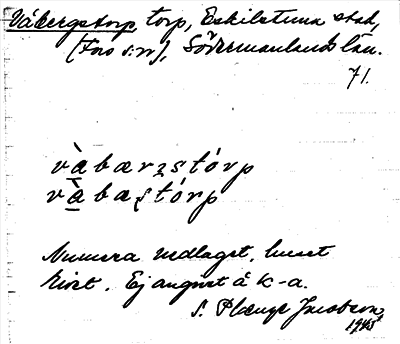 Våbergstorp, torp, Eskilstuna stad,
(Fors s:n), Södermanlands län.
71.
vàbærʒstórp
vàbaʂtórp
Numera nedlaget, huset
rivet. Ej angivet å K-a.
S. Plænge Jacobson
1945